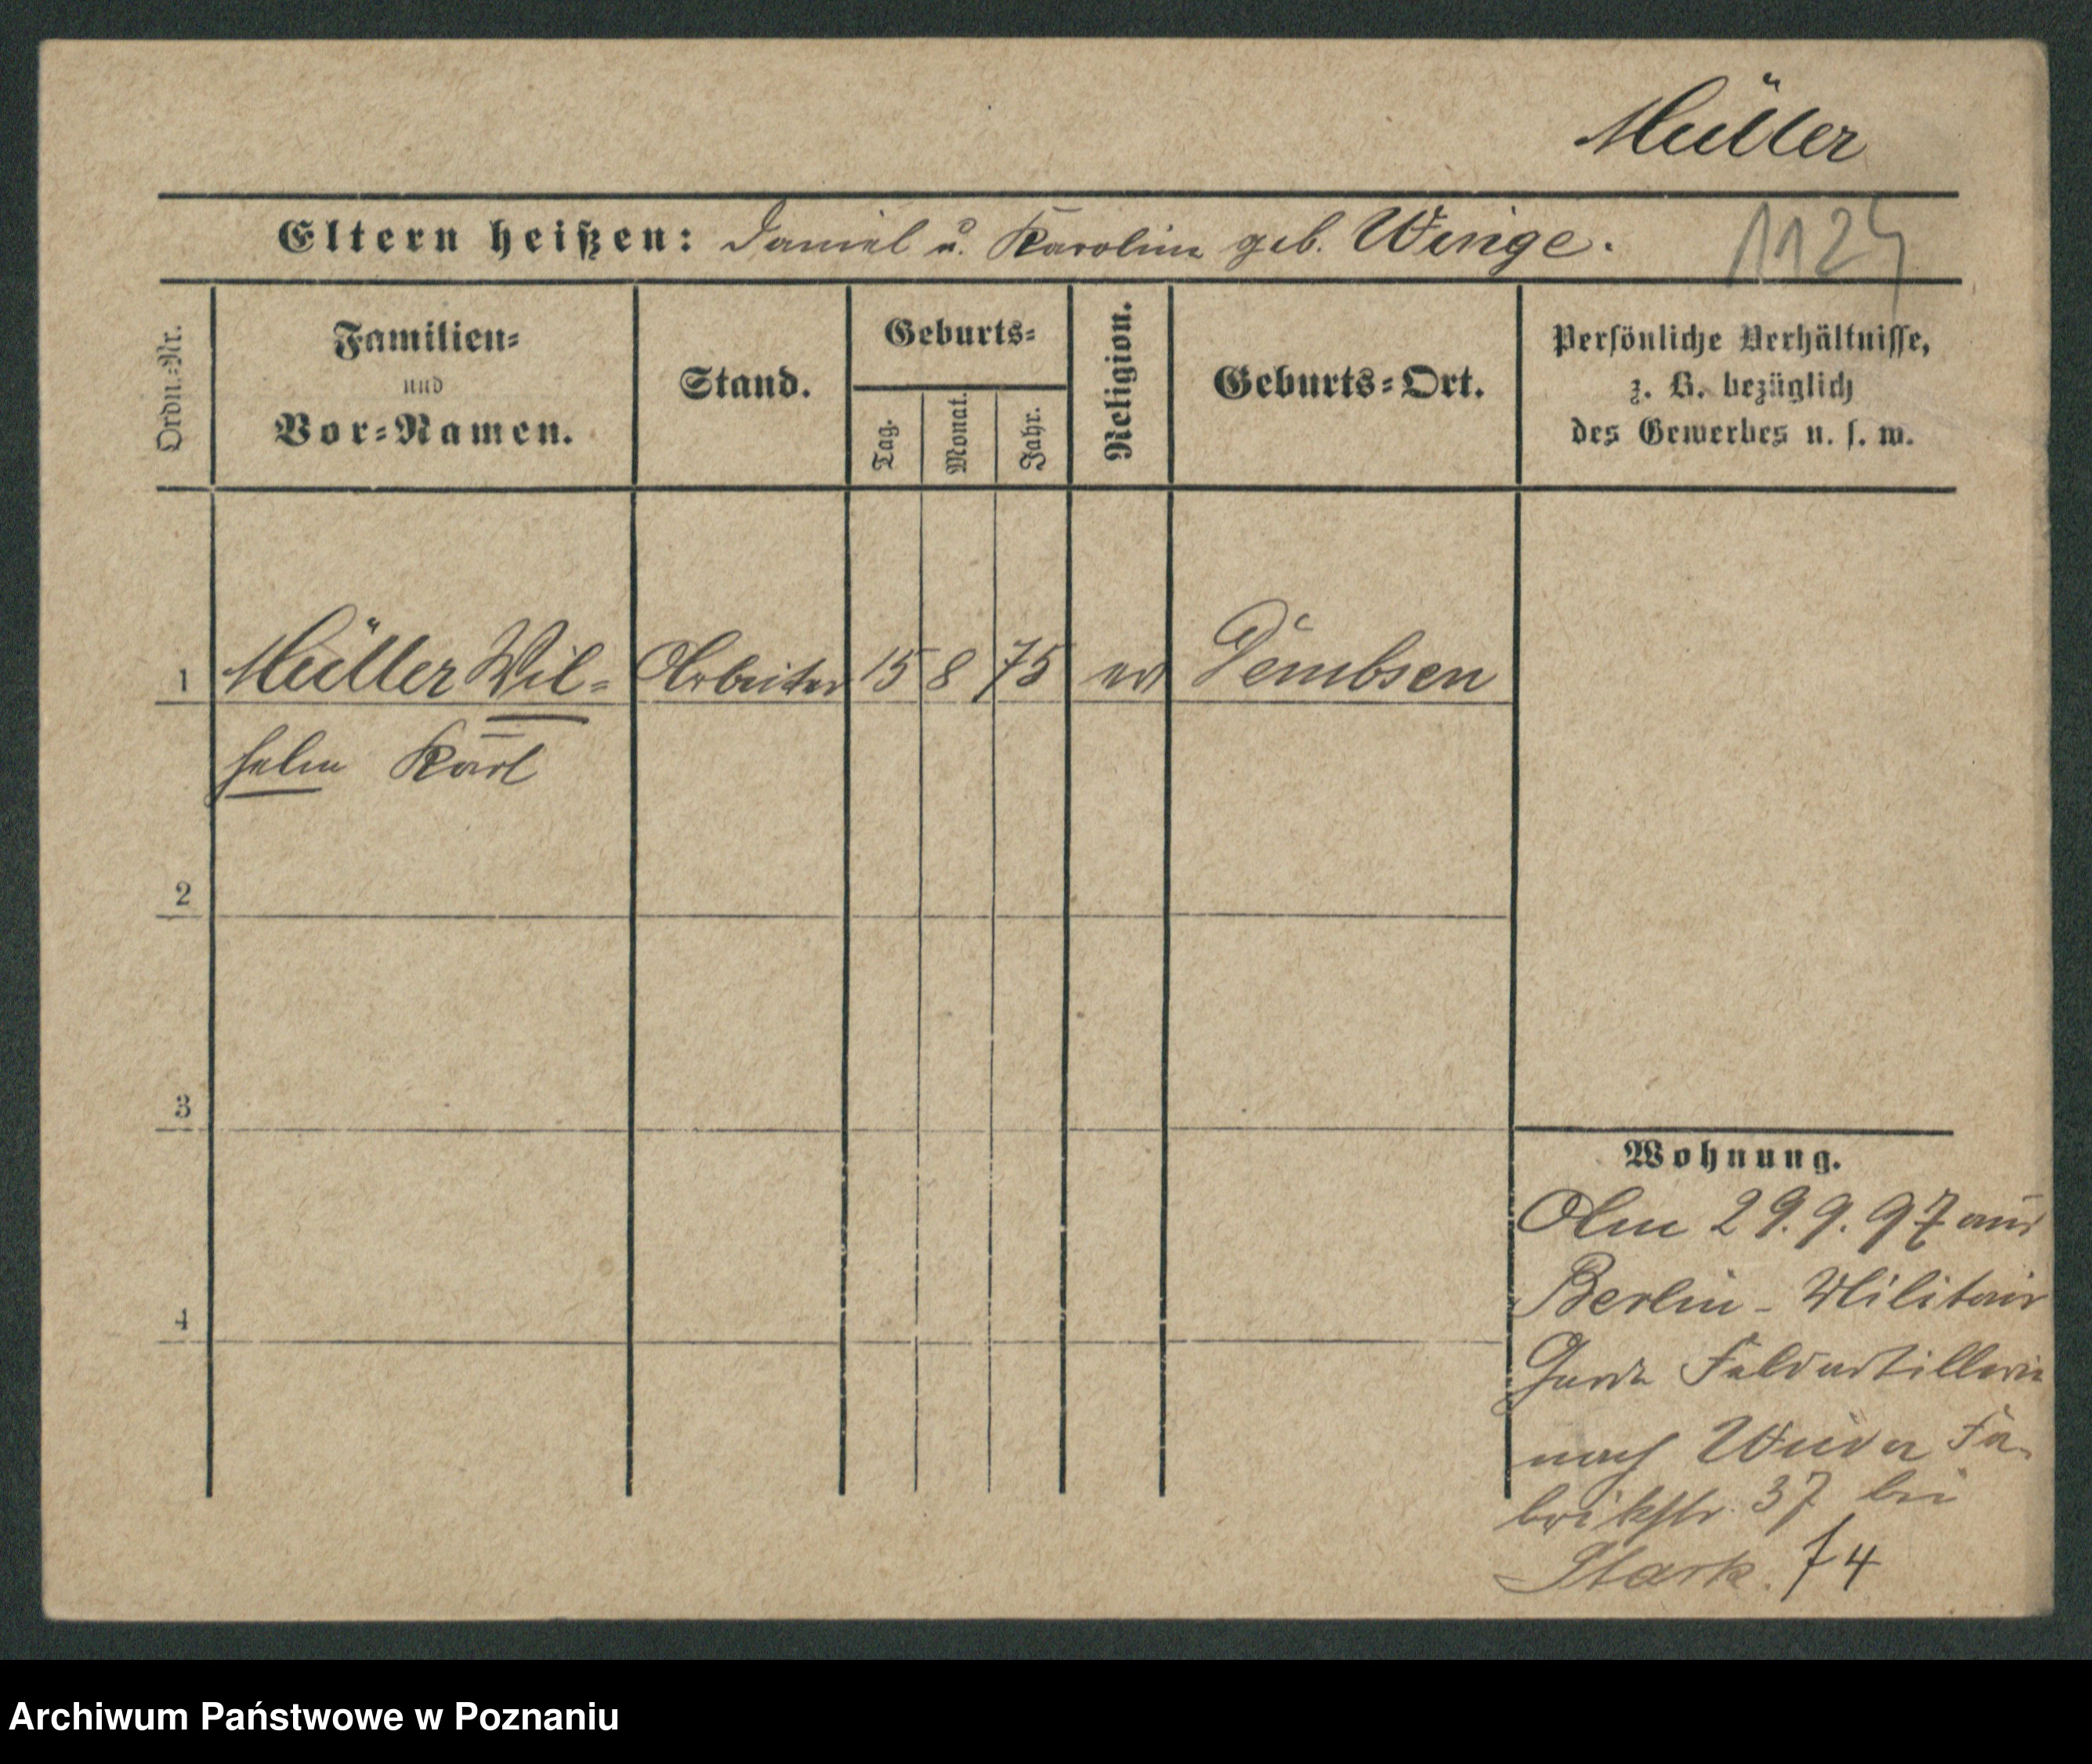 Müller
Eltern heißen: Daniel u. Karoline geb. Werige.
1124
Ordn.-Nr.
Familien-
und
Vor-Namen.
Stand.
Geburts-
Tag.
Monat.
Jahr.
Religion.
Geburts-Ort.
Persönliche Verhältnisse,
z. B. bezüglich
des Gewerbes u. s. w.
1 Müller Wil- Arbeiter 15 8 75 ev Dembsen
helm Karl
2
3
4
Wohnung.
Am 29.9.97 aus
Berlin - Militair
Garde Feldartillerie
nach Fa-
brikstr. 37 bei
Stark. 74
Archiwum Państwowe w Poznaniu